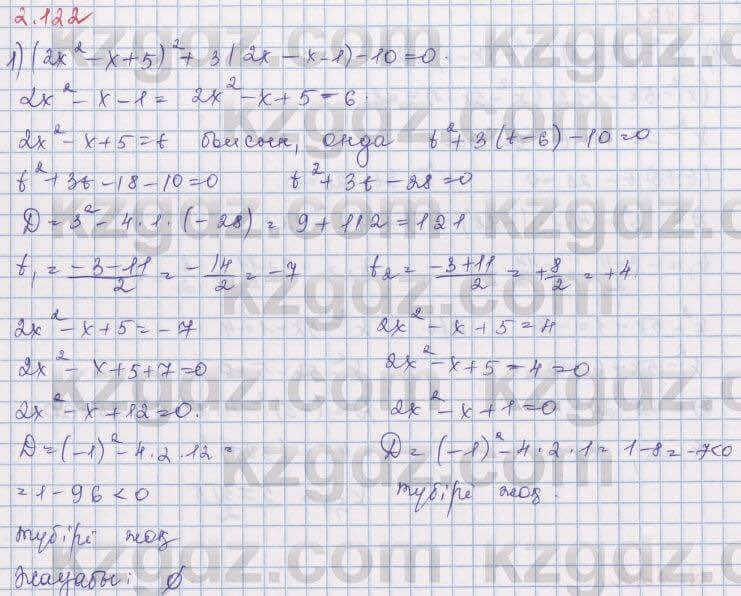 2.122
1) (2x² - x + 5)² + 3(2x - x - 1) - 10 = 0.
2x² - x - 1 = 2x² - x + 5 - 6.
2x² - x + 5 = t болсын, онда t² + 3(t - 6) - 10 = 0
t² + 3t - 18 - 10 = 0 t² + 3t - 28 = 0
D = 3² - 4·1·(-28) = 9 + 112 = 121
t₁ = (-3-11)/2 = -14/2 = -7 t₂ = (-3+11)/2 = +8/2 = +4.
2x² - x + 5 = -7 2x² - x + 5 = 4
2x² - x + 5 + 7 = 0 2x² - x + 5 - 4 = 0
2x² - x + 12 = 0. 2x² - x + 1 = 0
D = (-1)² - 4·2·12 = D = (-1)² - 4·2·1 = 1 - 8 = -7 < 0
= 1 - 96 < 0 түбірі жоқ.
түбірі жоқ
Жауабы: ∅
kzgdz.com